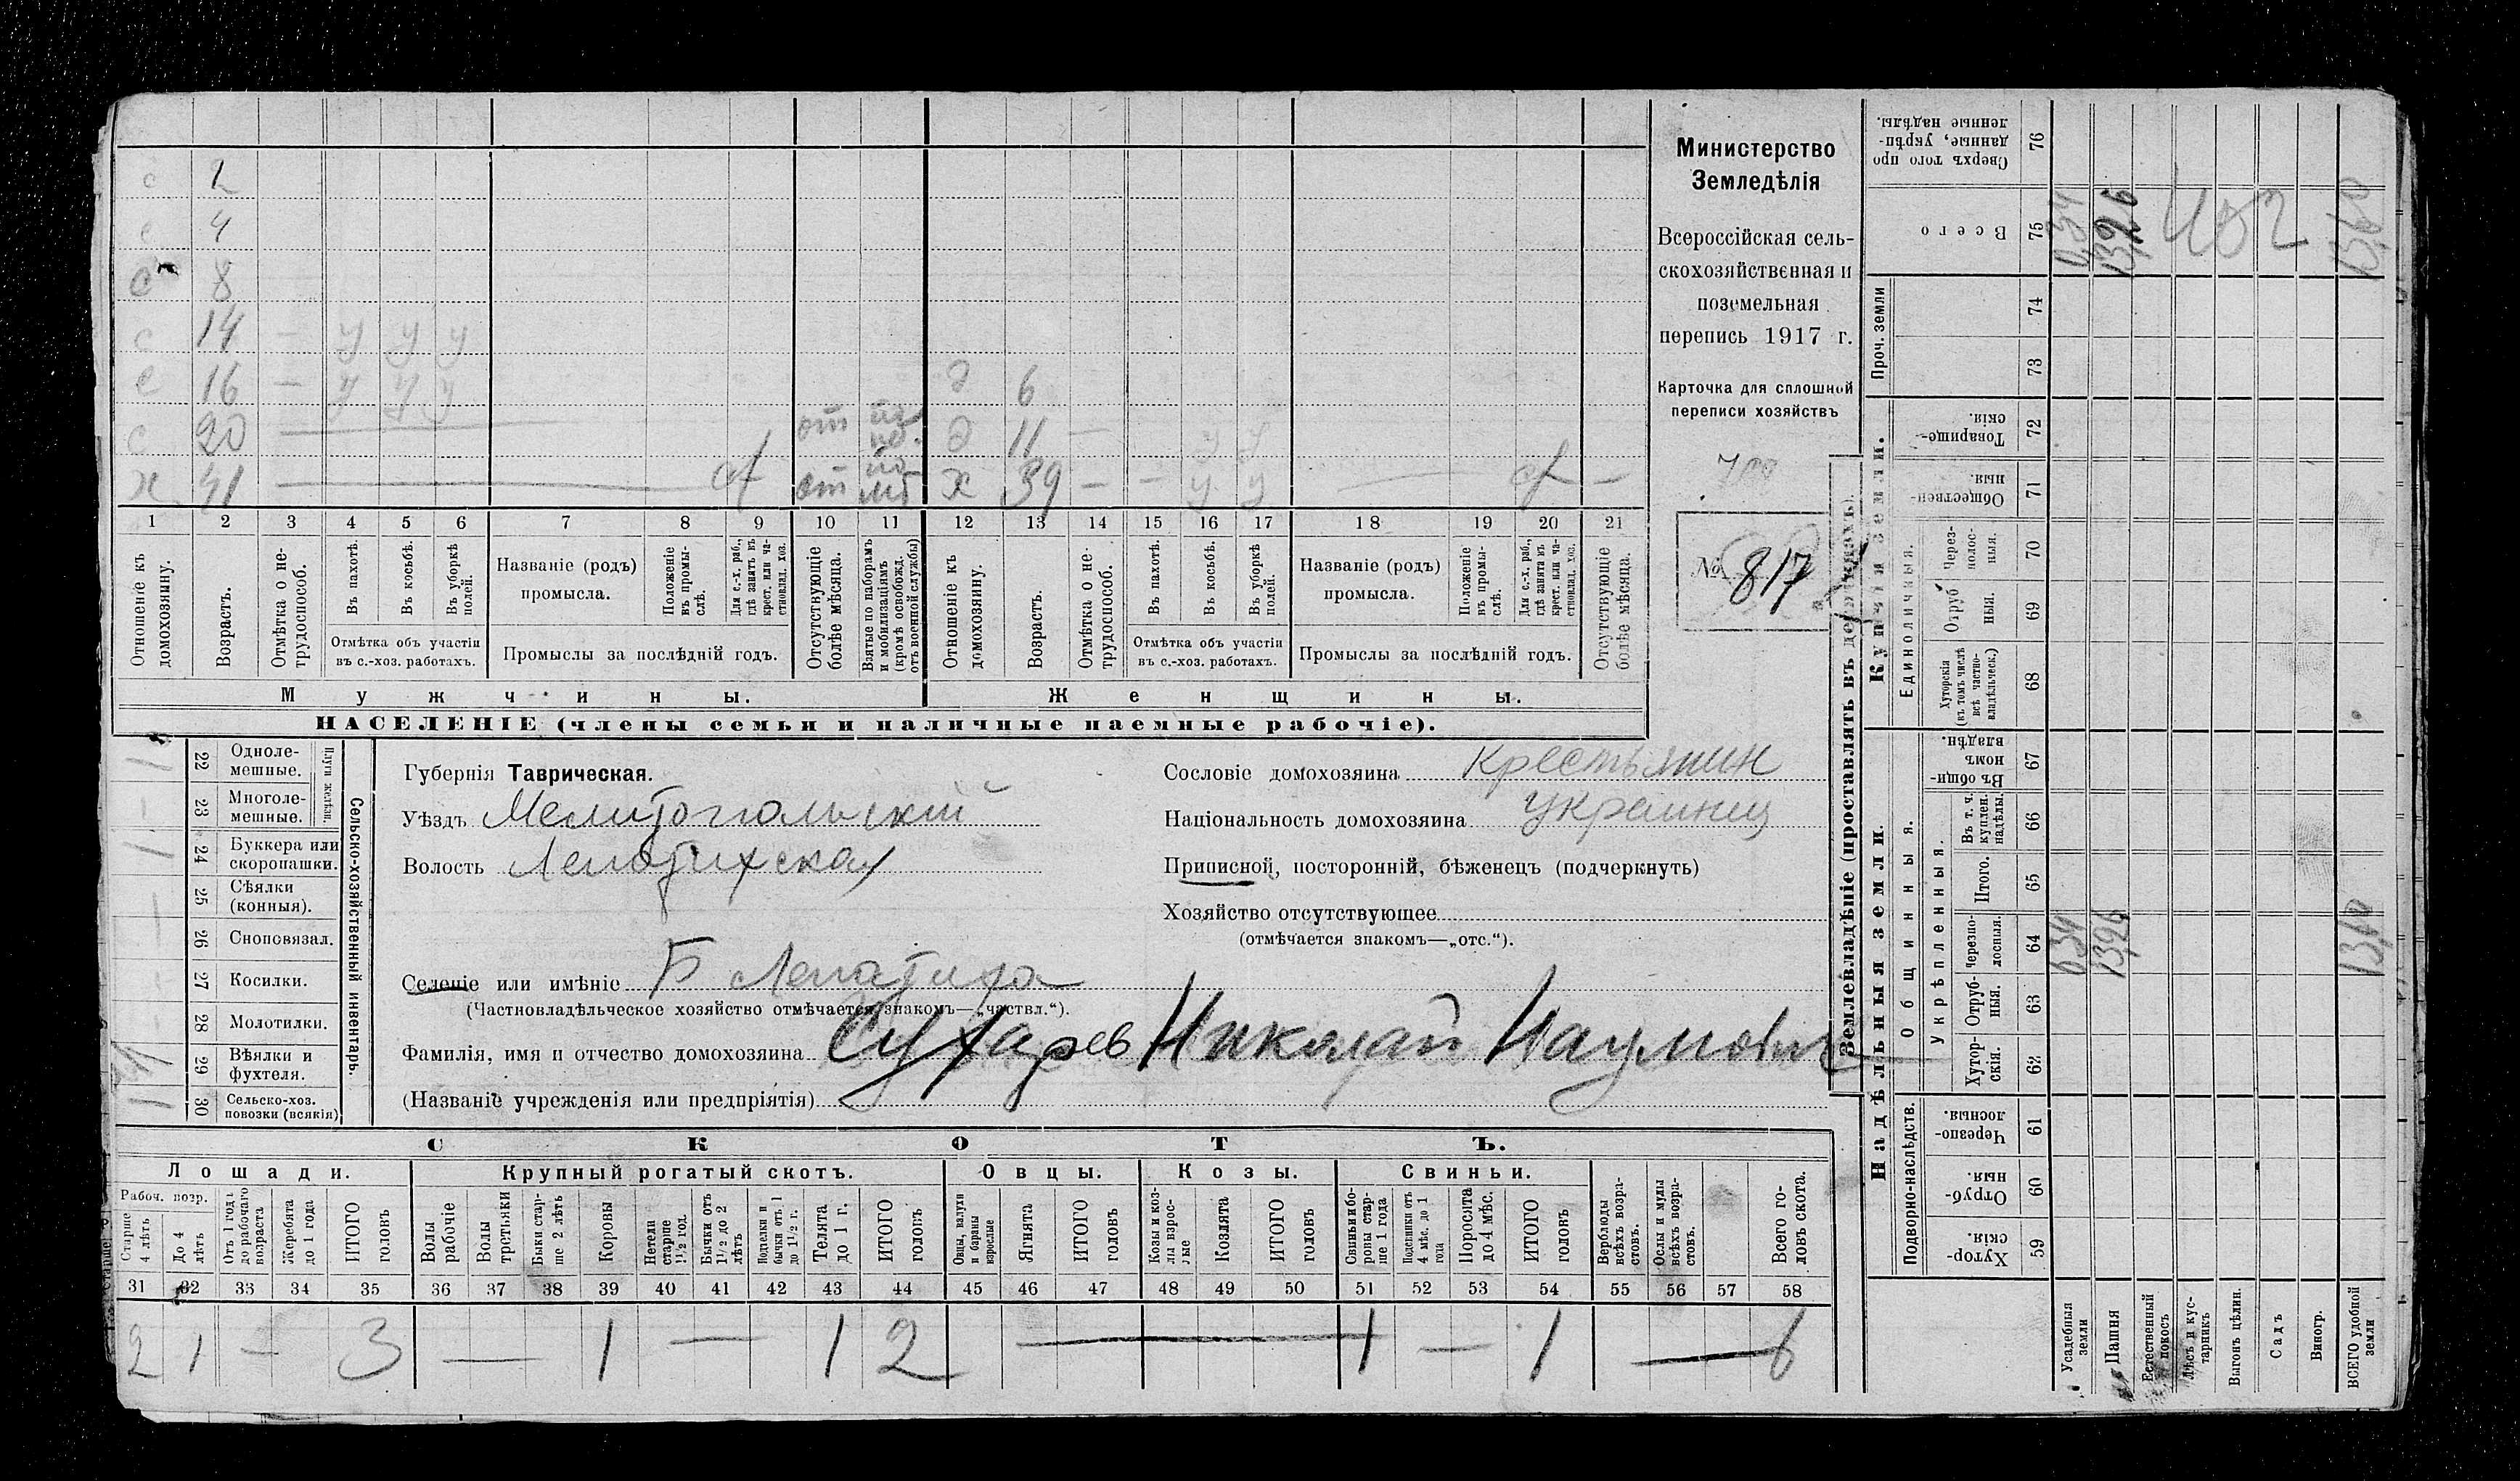 с 2
с 4
с 8
с 14 — у у у
с 16 — у у у д 6
с 20 — от по моб. д 11 — у у
х 41 — сх от по моб х 39 — — у у — сх —
1 2 3 4 5 6 7 8 9 10 11 12 13 14 15 16 17 18 19 20 21
Отношеніе къ домохозяину.
Возрастъ.
Отмѣтка о нетрудоспособ.
Въ пахотѣ.
Въ косьбѣ.
Въ уборкѣ полей.
Отмѣтка объ участіи
въ с.-хоз. работахъ.
Названіе (родъ)
промысла.
Положеніе въ промыслѣ.
Для с.-х. раб., гдѣ занятъ въ крест. или частновлад. хоз.
Промыслы за послѣдній годъ.
Отсутствующіе болѣе мѣсяца.
Взятые по наборамъ и мобилизаціямъ (кромѣ освобожд. отъ военной службы)
Отношеніе къ домохозяину.
Возрастъ.
Отмѣтка о нетрудоспособ.
Въ пахотѣ.
Въ косьбѣ.
Въ уборкѣ полей.
Отмѣтка объ участіи
въ с.-хоз. работахъ.
Названіе (родъ)
промысла.
Положеніе въ промыслѣ.
Для с.-х. раб., гдѣ занята въ крест. или частновлад. хоз.
Промыслы за послѣдній годъ.
Отсутствующіе болѣе мѣсяца.
Мужчины. Женщины.
НАСЕЛЕНІЕ (члены семьи и наличные наемные рабочіе).
Министерство
Земледѣлія
Всероссійская сель-
скохозяйственная и
поземельная
перепись 1917 г.
Карточка для сплошной
переписи хозяйствъ
№ 817
Сельско-хозяйственный инвентарь.
Плуги желѣзн.
22 Одноле-
мешные.
23 Многоле-
мешные.
24 Буккера или
скоропашки.
25 Сѣялки
(конныя).
26 Сноповязал.
27 Косилки.
28 Молотилки.
29 Вѣялки и
фухтеля.
30 Сельско-хоз.
повозки (всякія)
Губернія Таврическая.
Уѣздъ Мелитопольскій
Волость Лепатихская
Селеніе или имѣніе Б Лепатиха
(Частновладѣльческое хозяйство отмѣчается знакомъ—„частвл.“).
Фамилія, имя и отчество домохозяина Сухарев Николай Наумович
(Названіе учрежденія или предпріятія)
Сословіе домохозяина Крестьянин
Національность домохозяина Украинец
Приписной, посторонній, бѣженецъ (подчеркнуть)
Хозяйство отсутствующее
(отмѣчается знакомъ—„отс.“).
СКОТЪ.
Лошади. Крупный рогатый скотъ. Овцы. Козы. Свиньи.
Рабоч. возр.
Старше 4 лѣтъ
До 4 лѣтъ
Отъ 1 года до рабочаго возраста
Жеребята до 1 года
ИТОГО головъ
Волы рабочіе
Волы третьяки
Быки старше 2 лѣтъ
Коровы
Нетели старше 1½ год.
Бычки отъ 1½ до 2 лѣтъ
Подтелки и бычки отъ 1 до 1½ г.
Телята до 1 г.
ИТОГО головъ
Овцы, валухи и бараны взрослые
Ягнята
ИТОГО головъ
Козы и козлы взрослые
Козлята
ИТОГО головъ
Свиньи и боровы старше 1 года
Подсвинки отъ 4 мѣс. до 1 года
Поросята до 4 мѣс.
ИТОГО головъ
Верблюды всѣхъ возрастовъ.
Ослы и мулы всѣхъ возрастовъ.
Всего головъ скота.
31 32 33 34 35 36 37 38 39 40 41 42 43 44 45 46 47 48 49 50 51 52 53 54 55 56 57 58
2 1 — 3 — 1 — 1 2 — 1 — 1 — 6
Землевладѣніе (проставлять въ десятинахъ).
Надѣльныя земли. Купчія земли. Проч. земли
Подворно-наслѣдств. Общинныя. Укрѣпленныя. Единоличныя.
59 Хуторскія.
60 Отрубныя.
61 Черезполосныя.
62 Хуторскія.
63 Отрубныя.
64 Черезполосныя.
65 Итого.
66 Въ т. ч. куплен. надѣлы.
67 Въ общинномъ владѣн.
68 Хуторскія (въ томъ числѣ всѣ частновладѣльческ.)
69 Отрубныя.
70 Черезполосныя.
71 Общественныя.
72 Товарищескія.
73
74
75 Всего
76 Сверхъ того проданные, укрѣпленные надѣлы.
Усадебныя земли 0,34 0,34
Пашня 13,26 13,26
Естественный покосъ
Лѣсъ и кустарникъ
Выгонъ цѣлин.
Садъ
Виногр.
ВСЕГО удобной земли 13,60 13,60
402